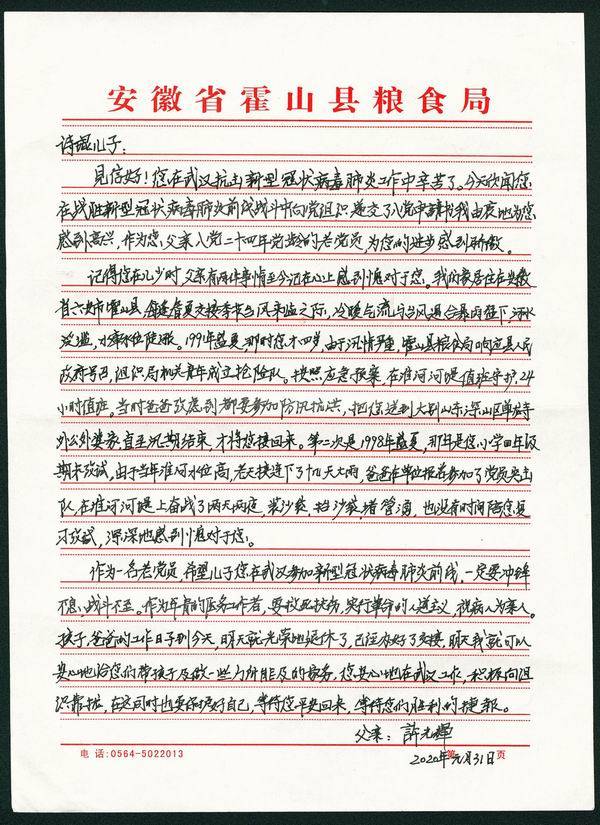 安徽省霍山县粮食局
儿子：
见信好！您在武汉抗击新型冠状病毒肺炎工作中辛苦了。今天欣闻您
在战胜新型冠状病毒肺炎前线战斗中向党组织递交了入党申请书我由衷地为您
感到高兴，作为您父亲入党二十四年党龄的老党员，为您的进步感到骄傲。
记得您在儿少时，父亲有两件事情至今记在心上感到愧对于您。我的家居住在安徽
省六安市霍山县，每逢春夏交接季节台风来临之际，冷暖气流与台风遇合暴雨骤下，河水
泛滥，水库水位陡涨。1991年盛夏，那时您才四岁，由于汛情严重，霍山县粮食局响应县人民
政府号召，组织局机关青年成立抢险队。按照应急预案，在淮河河堤值班守护，24
小时值班，当时爸爸考虑到都要参加防汛抗洪，把您送到大别山东深山区单龙寺
外公外婆家，直至汛期结束，才将您接回来。第二次是1998年盛夏，那年是您小学四年级
期末考试，由于当年淮河水位高，老天接连下了十几天大雨，爸爸在单位报名参加了党员突击
队，在淮河河堤上奋战了两天两夜，装沙袋，挡沙袋，堵管涌，也没有时间陪您复
习考试，深深地感到愧对于您。
作为一名老党员，希望儿子您在武汉参加新型冠状病毒肺炎前线，一定要冲锋
不息，战斗不至。作为年青的医务工作者，要救死扶伤，实行革命的人道主义，视病人为亲人。
孩子，爸爸的工作日子到今天，明天就光荣地退休了，已经办好了交接，明天我就可以
安心地给您们带孩子及做一些力所能及的家务，您安心地在武汉工作，积极向组
织靠拢，在这同时也要保护好自己，等待您平安回来，等待您们胜利的捷报。
父亲：许光辉
2020年元月31日
电话:0564-5022013
第 页